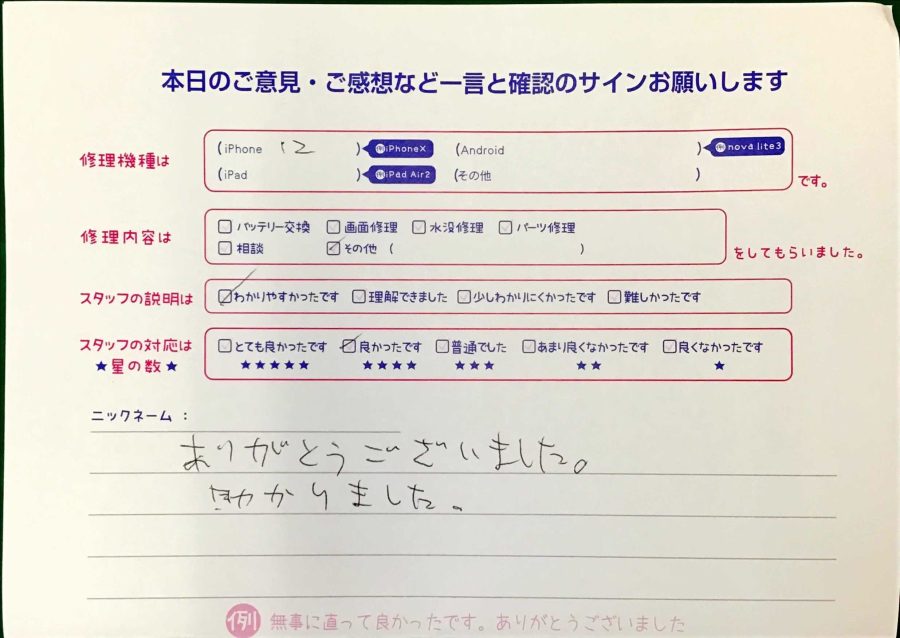 本日のご意見・ご感想など一言と確認のサインお願いします
修理機種は (iPhone 12 ) 例iPhoneX (Android ) 例nova lite3
(iPad ) 例iPad Air2 (その他 ) です。
修理内容は □バッテリー交換 □画面修理 □水没修理 □パーツ修理
□相談 ☑その他 ( ) をしてもらいました。
スタッフの説明は ☑わかりやすかったです □理解できました □少しわかりにくかったです □難しかったです
スタッフの対応は □とても良かったです ☑良かったです □普通でした □あまり良くなかったです □良くなかったです
★星の数★ ★★★★★ ★★★★ ★★★ ★★ ★
ニックネーム：
ありがとうございました。
助かりました。
例 無事に直って良かったです。ありがとうございました